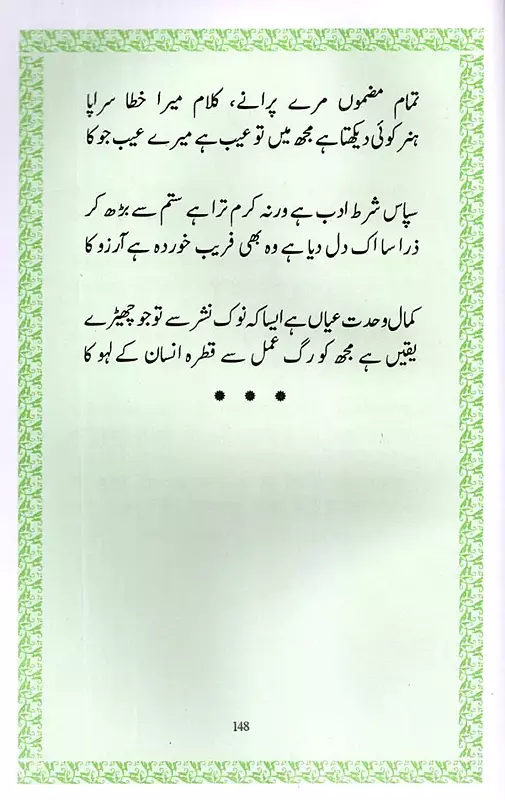 تمام مضموں مرے پرانے، کلام میرا خطا سراپا
ہنر کوئی دیکھتا ہے مجھ میں تو عیب ہے میرے عیب جو کا
سپاس شرط ادب ہے ورنہ کرم ترا ہے ستم سے بڑھ کر
ذرا سا اک دل دیا ہے وہ بھی فریب خوردہ ہے آرزو کا
کمال وحدت عیاں ہے ایسا کہ نوک نشتر سے تو جو چھیڑے
یقیں ہے مجھ کو رگ عمل سے قطرہ انسان کے لہو کا
148